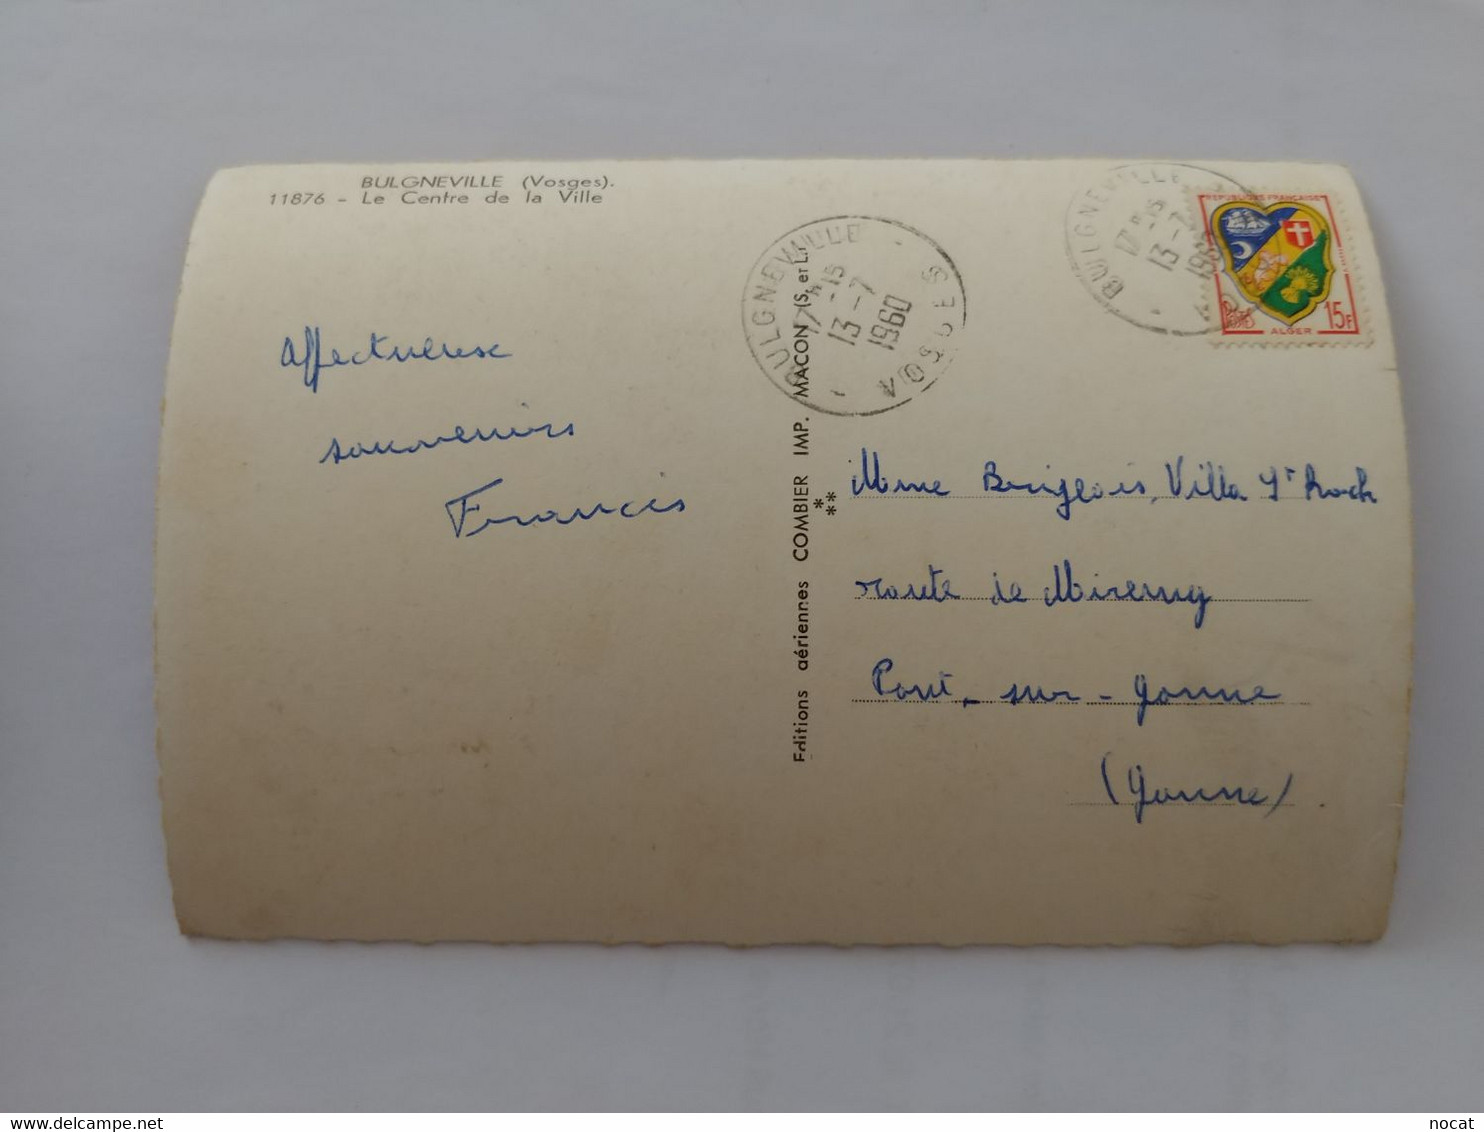 BULGNEVILLE (Vosges).
11876 - Le Centre de la Ville
Affectueuse
souvenirs
Francis
Editions aériennes COMBIER IMP. MACON (S. et L.)
BULGNEVILLE
17 H -15
13 -7
1960
VOSGES
BULGNEVILLE
17 H -15
13 -7
1960
REPUBLIQUE FRANÇAISE
POSTES
ALGER
15F
Mme Bourgeois, Villa St Roch
route de
Pont-sur-Yonne
(Yonne)
delcampe.net
nocat